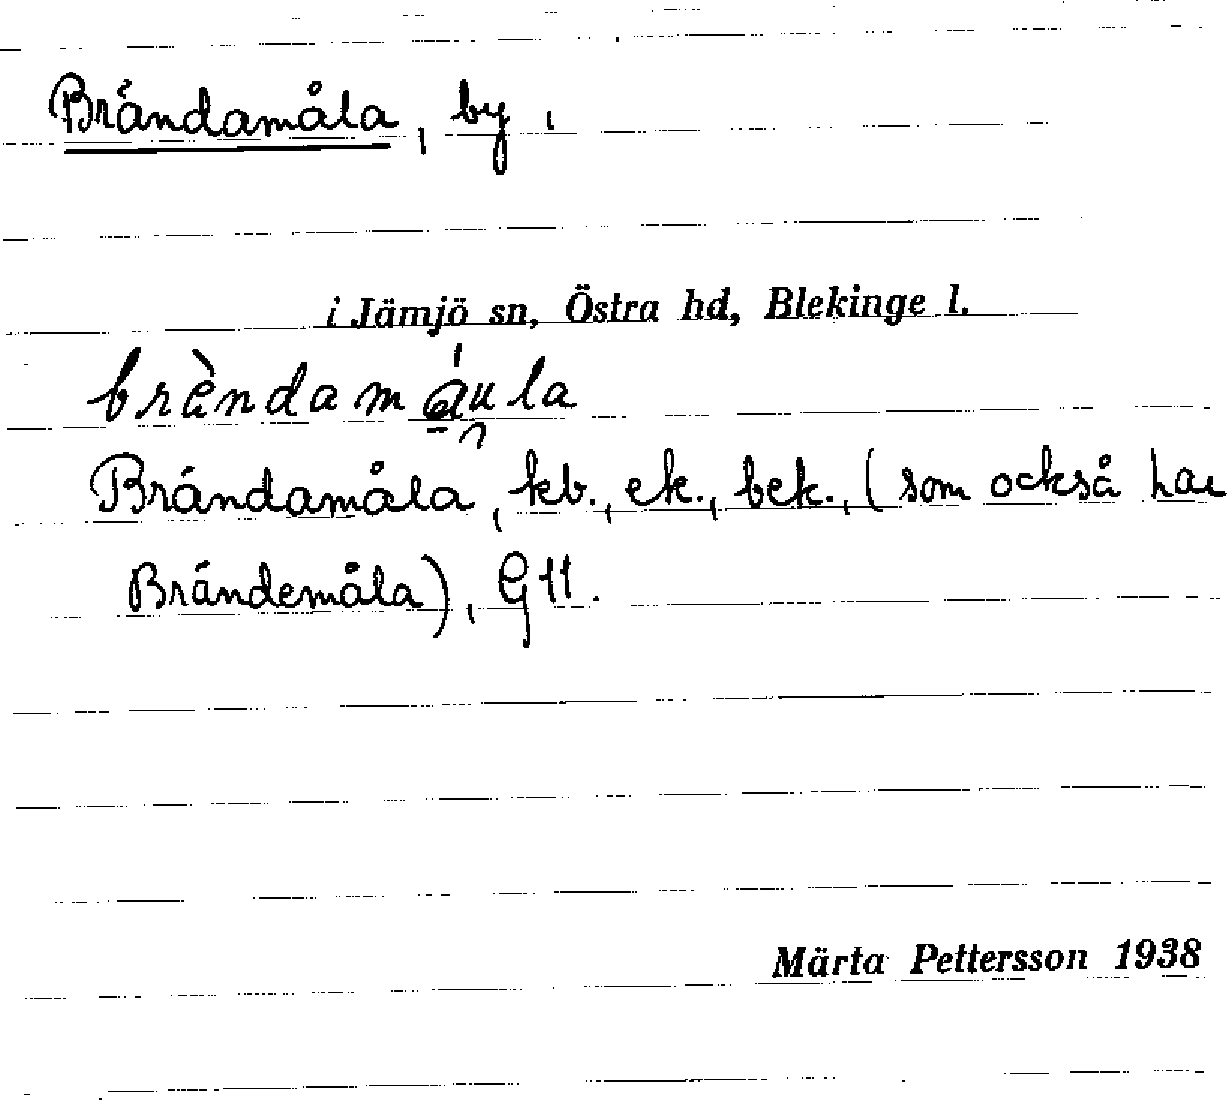 Brändamåla, by,
i Jämjö sn, Östra hd, Blekinge l.
brèndamáula
Brändamåla, kb., ek., bek., (som också har
Brändemåla), GH.
Märta Pettersson 1938